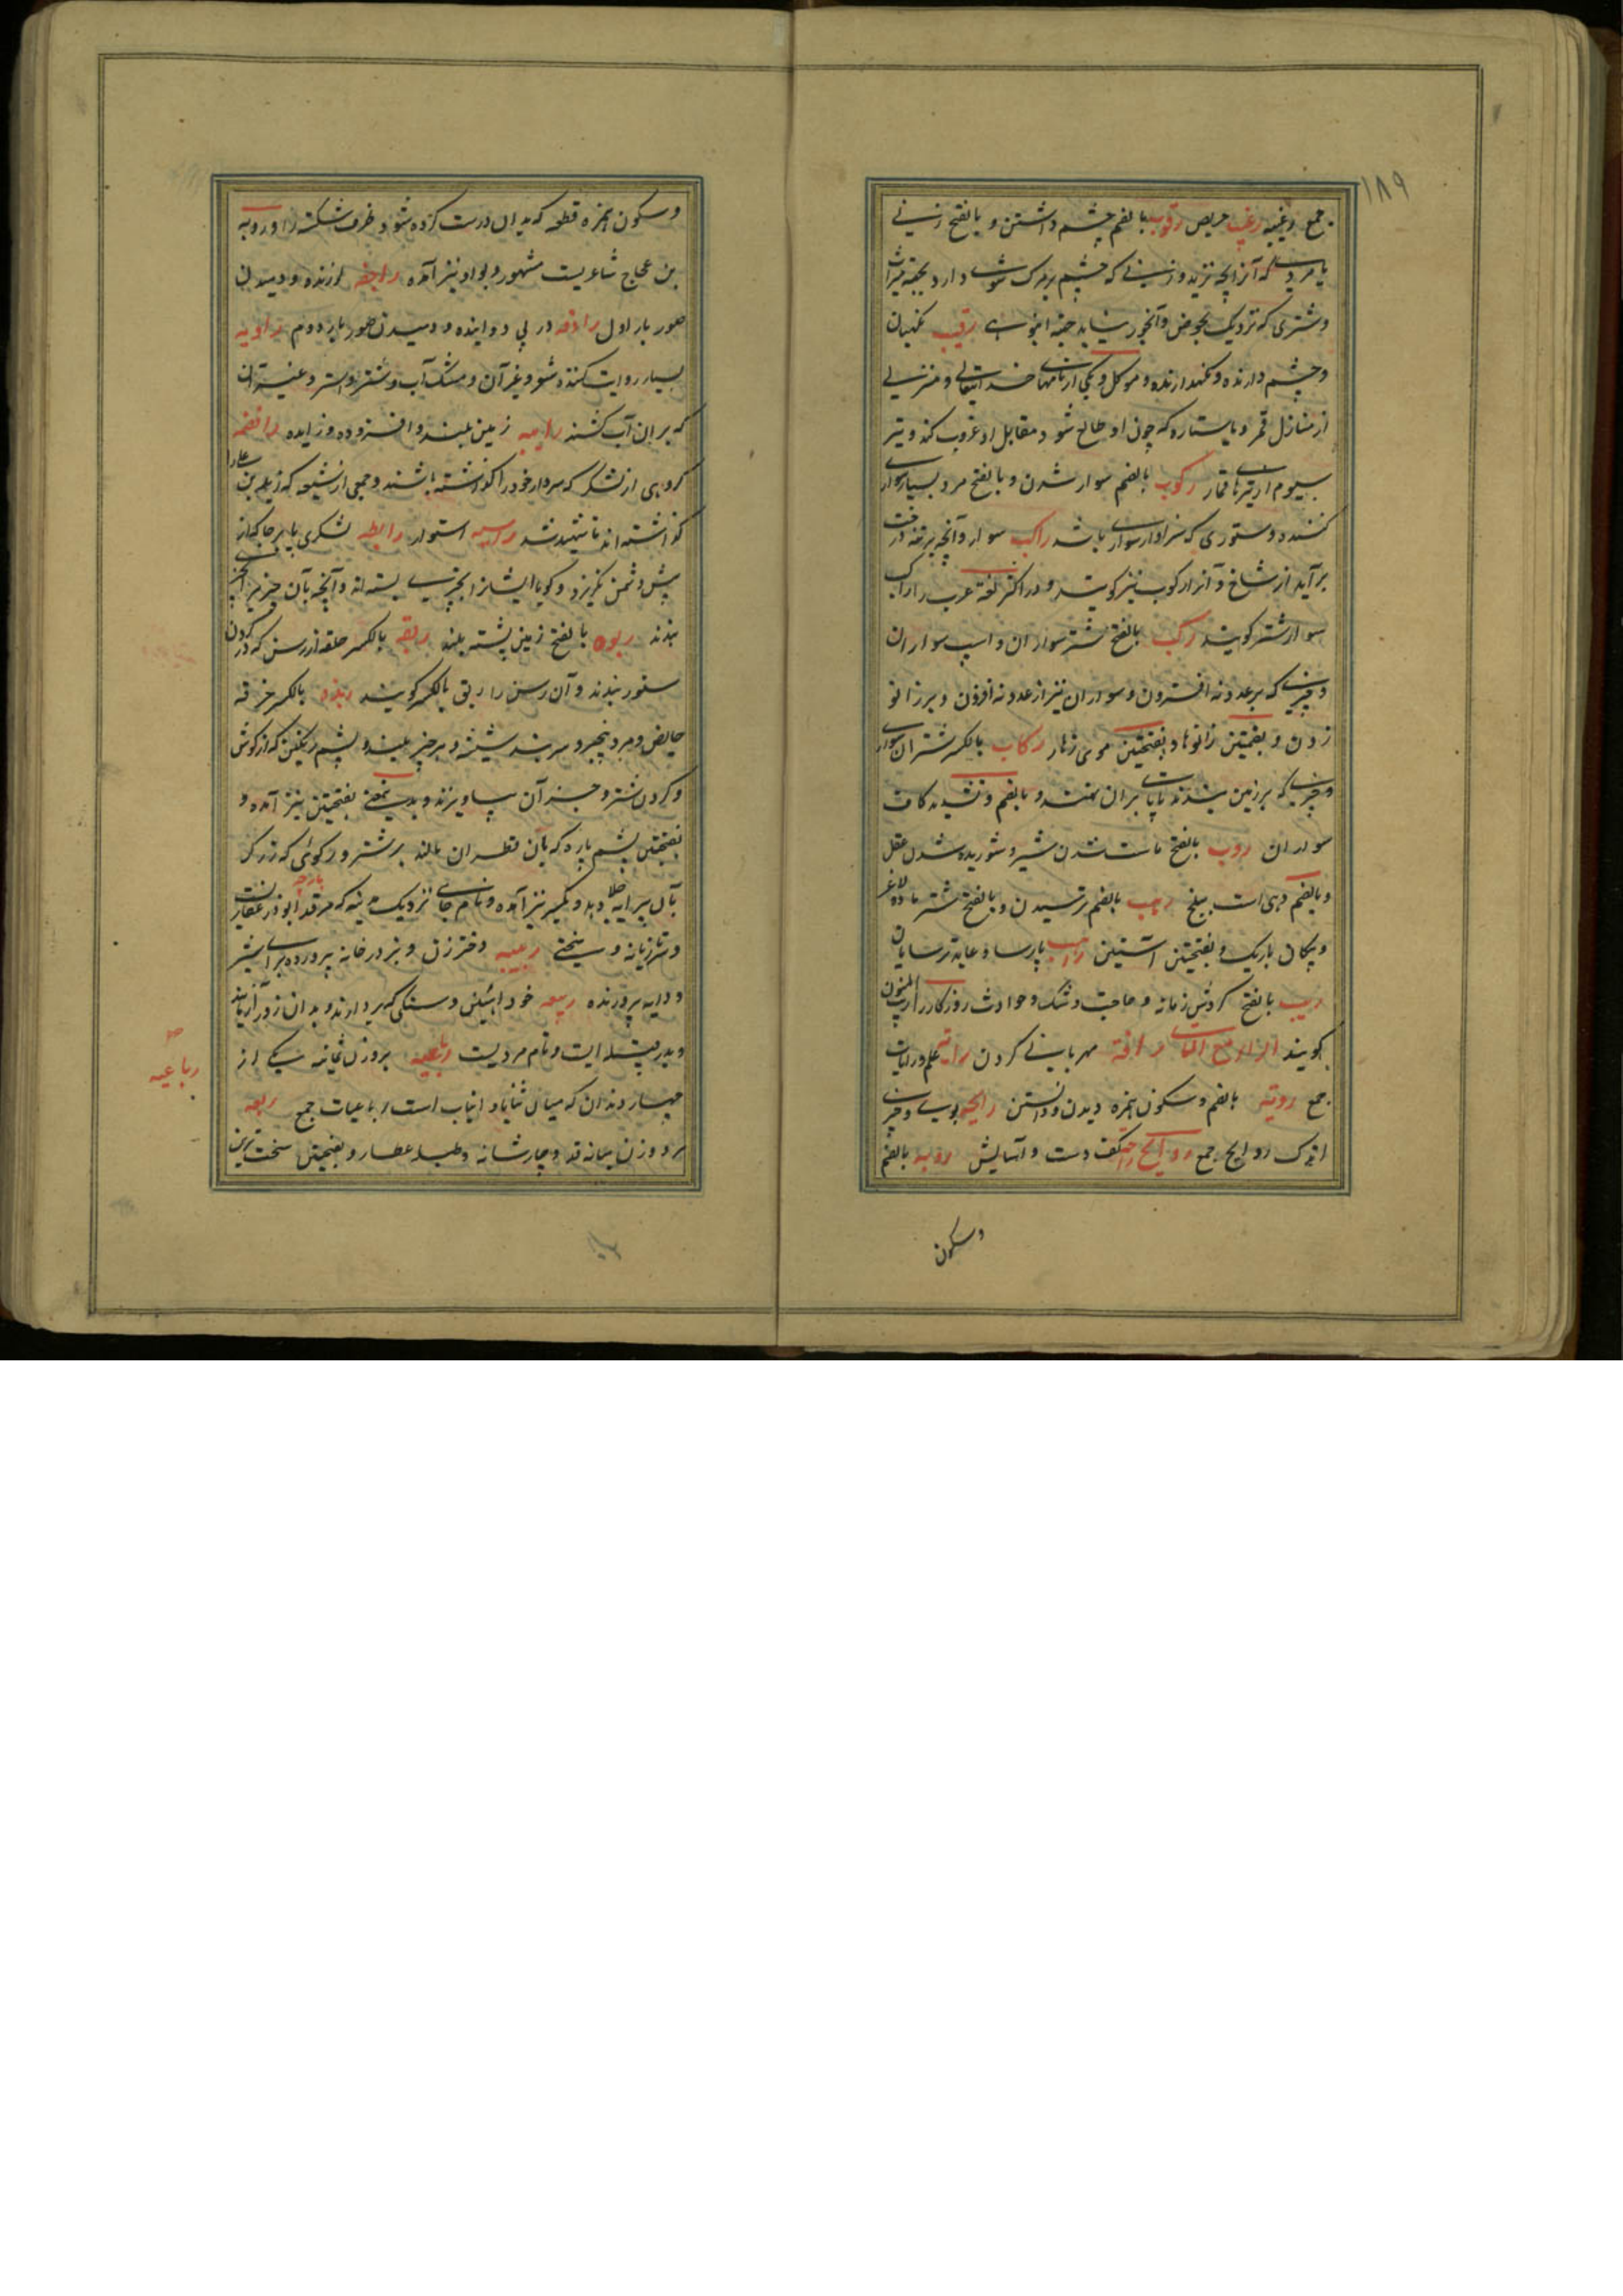 ۱۸۹
جمع رغیبه رغیب حریص رقوب بالضم چشم داشتن و بالفتح زنی
یا مردی که آنرا بچه نزید و زنی که چشم بر مرگ شوی دارد بجهة میراث
و شتری که نزدیک بحوض و آبخور نیاید جهة انبوهی رقیب نگهبان
و چشم دارنده و نگهدارنده و موکل و یکی از نامهای خدایتعالی و منزلی
از منازل قمر و یا ستاره که چون او طالع شود مقابل او غروب کند و تیر
سیوم از تیرهای قمار رکوب بالضم سوار شدن و بالفتح مرد بسیار سواری
کننده و ستوری که سزاوار سواری باشد راکب سوار و آنچه بر تنه درخت
برآید از شاخ و آنرا رکوب نیز گویند و در اکثر لغة عرب راکب
سوار شتر گویند رکب بالفتح شتر سواران و اسپ سواران
و چیزی که بر عدد نه افزون و سواران نیز از عدد نه افزون و بر زانو
زدن و بضمتین زانوها و بفتحتین موی زهار رکاب بالکسر شتران سواری
و چیزی که بر زین بندند تا پای بران نهند و بالضم و تشدید کاف
سواران روب بالفتح ماست شدن شیر و شوریده شدن عقل
و بالضم دهی است ببلخ رهب بالضم ترسیدن و بالفتح شتر ماده لاغر
و پیکان باریک و بفتحتین آستین راهب پارسا و عابد ترسایان
ریب بالفتح گردش زمانه و حاجت و شک و حوادث روزگار را ریب المنون
گویند الراء مع التاء رافة مهربانی کردن رایة علم و رایات
جمع رویة بالضم و سکون همزه دیدن و دانستن رایحه بوی و چیزی
اندک روایح جمع روایح راحة کف دست و آسایش روبه بالضم
وسکون
و سکون همزه قطعه که بدان درست کرده شود ظرف شکسته را و روبه
بن عجاج شاعریست مشهور و بواو نیز آمده راجفه لرزنده و دمیدن
صور بار اول رادفه در پی درآینده و دمیدن صور بار دوم راویه
بسیار روایت کننده شعر و غیر آن و مشک آب و شتر و استر و غیر آن
که بران آب کشند رابیه زمین بلند و افزوده و زایده رافضه
گروهی از لشکر که سردار خود را گذاشته باشند و جمعی از شیعه که زید بن علی را
گذاشته اند تا شهید شد راسیه استوار رابطه لشکری پابرجا که از
پیش دشمن نگریزد و گویا ایشانرا بچیزی بسته اند و آنچه بآن چیزی را بچیزی
بندند ربوه بالفتح زمین پشته بلند ربقه بالکسر حلقه از رسن که در گردن
ستور بندند و آن رسن را ربق بالکسر گویند ربذه بالکسر خرقه
حایض و مرد بیخیر و سربند شیشه و هر چیز پلید و پشم رنگین که از گوش
و گردن شتر و جز آن بیاویزند و بدینمعنی بفتحتین نیز آمده و
بفتحتین پشم پاره که بآن قطران مالند بر شتر و رکوی که زرگر
بآن پیرایه جلا دهد و بکسر نیز آمده و نام جای نزدیک مدینه که مرقد ابوذر غفاریست
پارچه
و تازیانه و سختی ربیبه دختر زن و بز در خانه پرورده برای شیر
و دایه پرورنده ربیعه خود آهنین و سنگی که بردارند و بدان زور آزمایند
و پدر قبیله ایست و نام مردیست رباعیه بروزن ثمانیه یکی از
چهار دندان که میان ثنایا و انیاب است رباعیات جمع ربعه
مرد و زن میانه قد و چارشانه و طبله عطار و بفتحتین سخت ترین
رباعیه